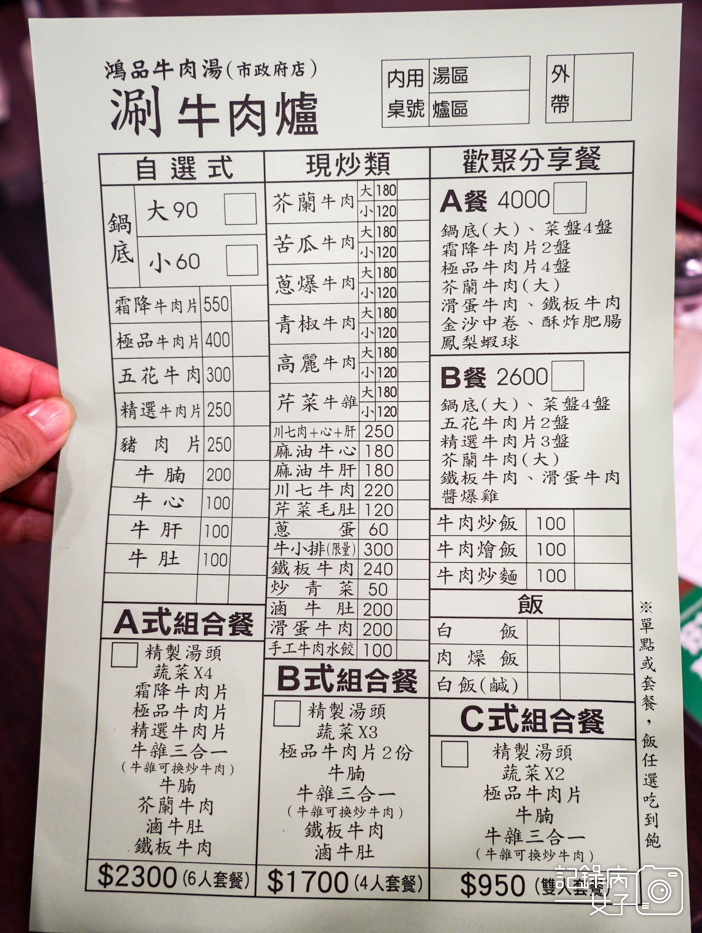 鴻品牛肉湯(市政府店)
涮牛肉爐
內用桌號
湯區
爐區
外帶
自選式
鍋底
大90
小60
霜降牛肉片 550
極品牛肉片 400
五花牛肉 300
精選牛肉片 250
豬肉片 250
牛腩 200
牛心 100
牛肝 100
牛肚 100
A式組合餐
精製湯頭
蔬菜X4
霜降牛肉片
極品牛肉片
精選牛肉片
牛雜三合一
(牛雜可換炒牛肉)
牛腩
芥蘭牛肉
滷牛肚
鐵板牛肉
$2300(6人套餐)
現炒類
芥蘭牛肉 大180 小120
苦瓜牛肉 大180 小120
蔥爆牛肉 大180 小120
青椒牛肉 大180 小120
高麗牛肉 大180 小120
芹菜牛雜 大180 小120
川七肉+心+肝 250
麻油牛心 180
麻油牛肝 180
川七牛肉 220
芹菜毛肚 120
蔥蛋 60
牛小排(限量) 300
鐵板牛肉 240
炒青菜 50
滷牛肚 200
滑蛋牛肉 200
手工牛肉水餃 100
B式組合餐
精製湯頭
蔬菜X3
極品牛肉片2份
牛腩
牛雜三合一
(牛雜可換炒牛肉)
鐵板牛肉
滷牛肚
$1700(4人套餐)
歡聚分享餐
A餐 4000
鍋底(大)、菜盤4盤
霜降牛肉片2盤
極品牛肉片4盤
芥蘭牛肉(大)
滑蛋牛肉、鐵板牛肉
金沙中卷、酥炸肥腸
鳳梨蝦球
B餐 2600
鍋底(大)、菜盤4盤
五花牛肉片2盤
精選牛肉片3盤
芥蘭牛肉(大)
鐵板牛肉、滑蛋牛肉
醬爆雞
牛肉炒飯 100
牛肉燴飯 100
牛肉炒麵 100
飯
白飯
肉燥飯
白飯(鹹)
C式組合餐
精製湯頭
蔬菜X2
極品牛肉片
牛腩
牛雜三合一
(牛雜可換炒牛肉)
$950(雙人套餐)
※單點或套餐，飯任選吃到飽
記錄內
女子